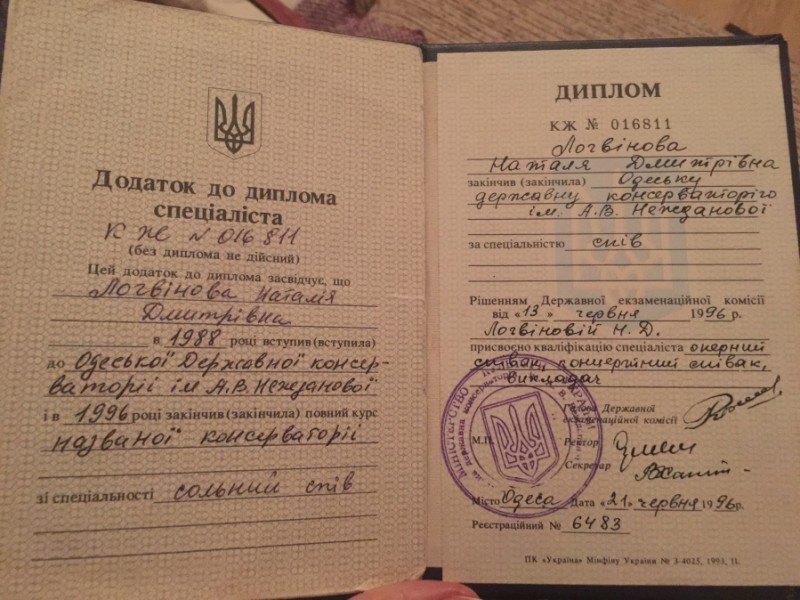 Додаток до диплома
спеціаліста
КЖ N 016811
(без диплома не дійсний)
Цей додаток до диплома засвідчує, що
Логвінова Наталія
Дмитрівна
в 1988 році вступив (вступила)
до Одеської Державної консер-
ваторії ім А.В.Нежданової
і в 1996 році закінчив (закінчила) повний курс
названої консерваторії
зі спеціальності сольний спів
ДИПЛОМ
КЖ № 016811
Логвінова
Наталя Дмитрівна
закінчив (закінчила) Одеську
державну консерваторію
ім. А.В. Нежданової
за спеціальністю спів
Рішенням Державної екзаменаційної комісії
від «13» червня 1996 р.
Логвіновій Н. Д.
присвоєно кваліфікацію спеціаліста оперний
співак, концертний співак,
викладач
Голова Державної
екзаменаційної комісії
М.П. Ректор
Секретар
Місто Одеса Дата «21» червня 1996р.
Реєстраційний № 6483
ПК «Україна» Мінфіну України № 3-4025, 1993, II.